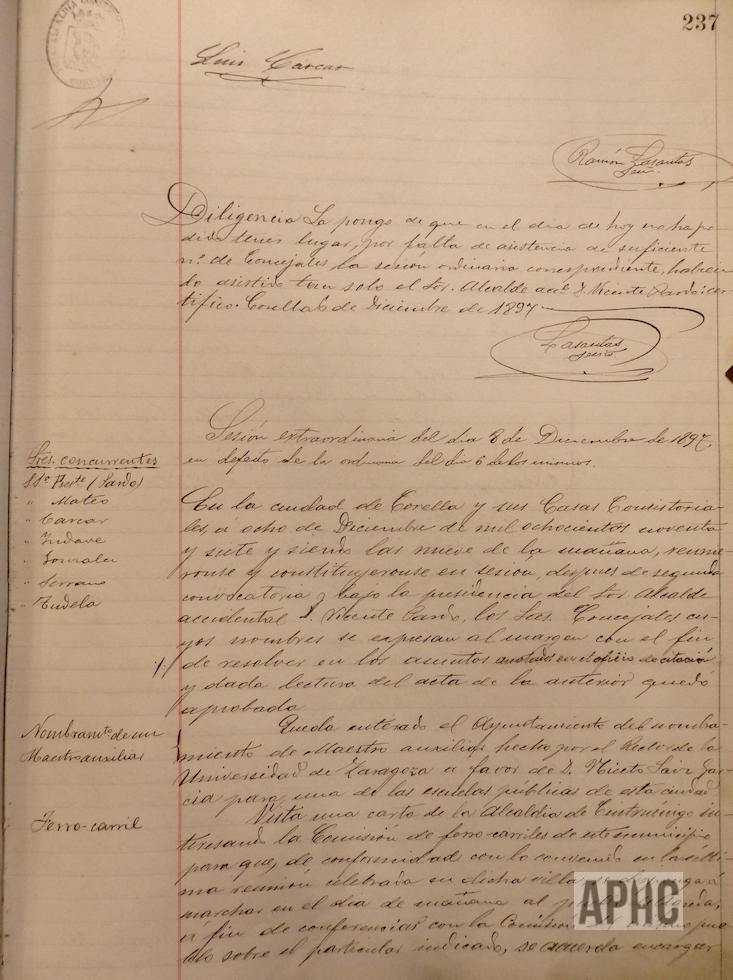 237
Luis Carcar
Ramón Lasantas
Srio.
Diligencia La pongo de que en el dia de hoy no ha po-
dido tener lugar, por falta de asistencia de suficiente
nº. de Concejales la sesión ordinaria correspondiente, habien-
do asistido tan solo el Sor. Alcalde accl. D. Vicente Sardo: cer-
tifico. Corella 6 de Diciembre de 1897
Lasantas
Srio.
Sesión extraordinaria del dia 8 de Diciembre de 1897,
en defecto de la ordinaria del dia 6 de los mismos.
Sres. concurrentes
Prte (Sardo)
" Mateo
" Carcar
" Yndave
" Gonzalez
" Serrano
" Tudela
En la ciudad de Corella y sus Casas Consistoria-
les, á ocho de Diciembre de mil ochocientos noventa
y siete y siendo las nueve de la mañana, reunie-
ronse y constituyeronse en sesión, despues de segunda
convocatoria y bajo la presidencia del Sor Alcalde
accidental D. Vicente Sardo, los Sres. Concejales cu-
yos nombres se expresan al margen con el fin
de resolver en los asuntos anotados en el oficio de citación
y dada lectura del acta de la anterior quedó
aprobada.
Nombramto. de un
Maestro auxiliar
Queda enterado el Ayuntamiento del nombra-
miento de Maestro auxiliar hecho por el Rector de la
Universidad de Zaragoza a favor de D. Niceto Sainz Gar-
cia para una de las escuelas públicas de esta ciudad
Ferro-carril
Vista una carta de la Alcaldia de Cintruénigo in-
teresando la Comisión de ferro-carriles de este municipio
para que, de conformidad con lo convenido en la últi-
ma reunión celebrada en dicha villa
marchar en el dia de mañana al
á fin de conferenciar con la Comision
blo sobre el particular indicado, se acuerda encargar
APHC